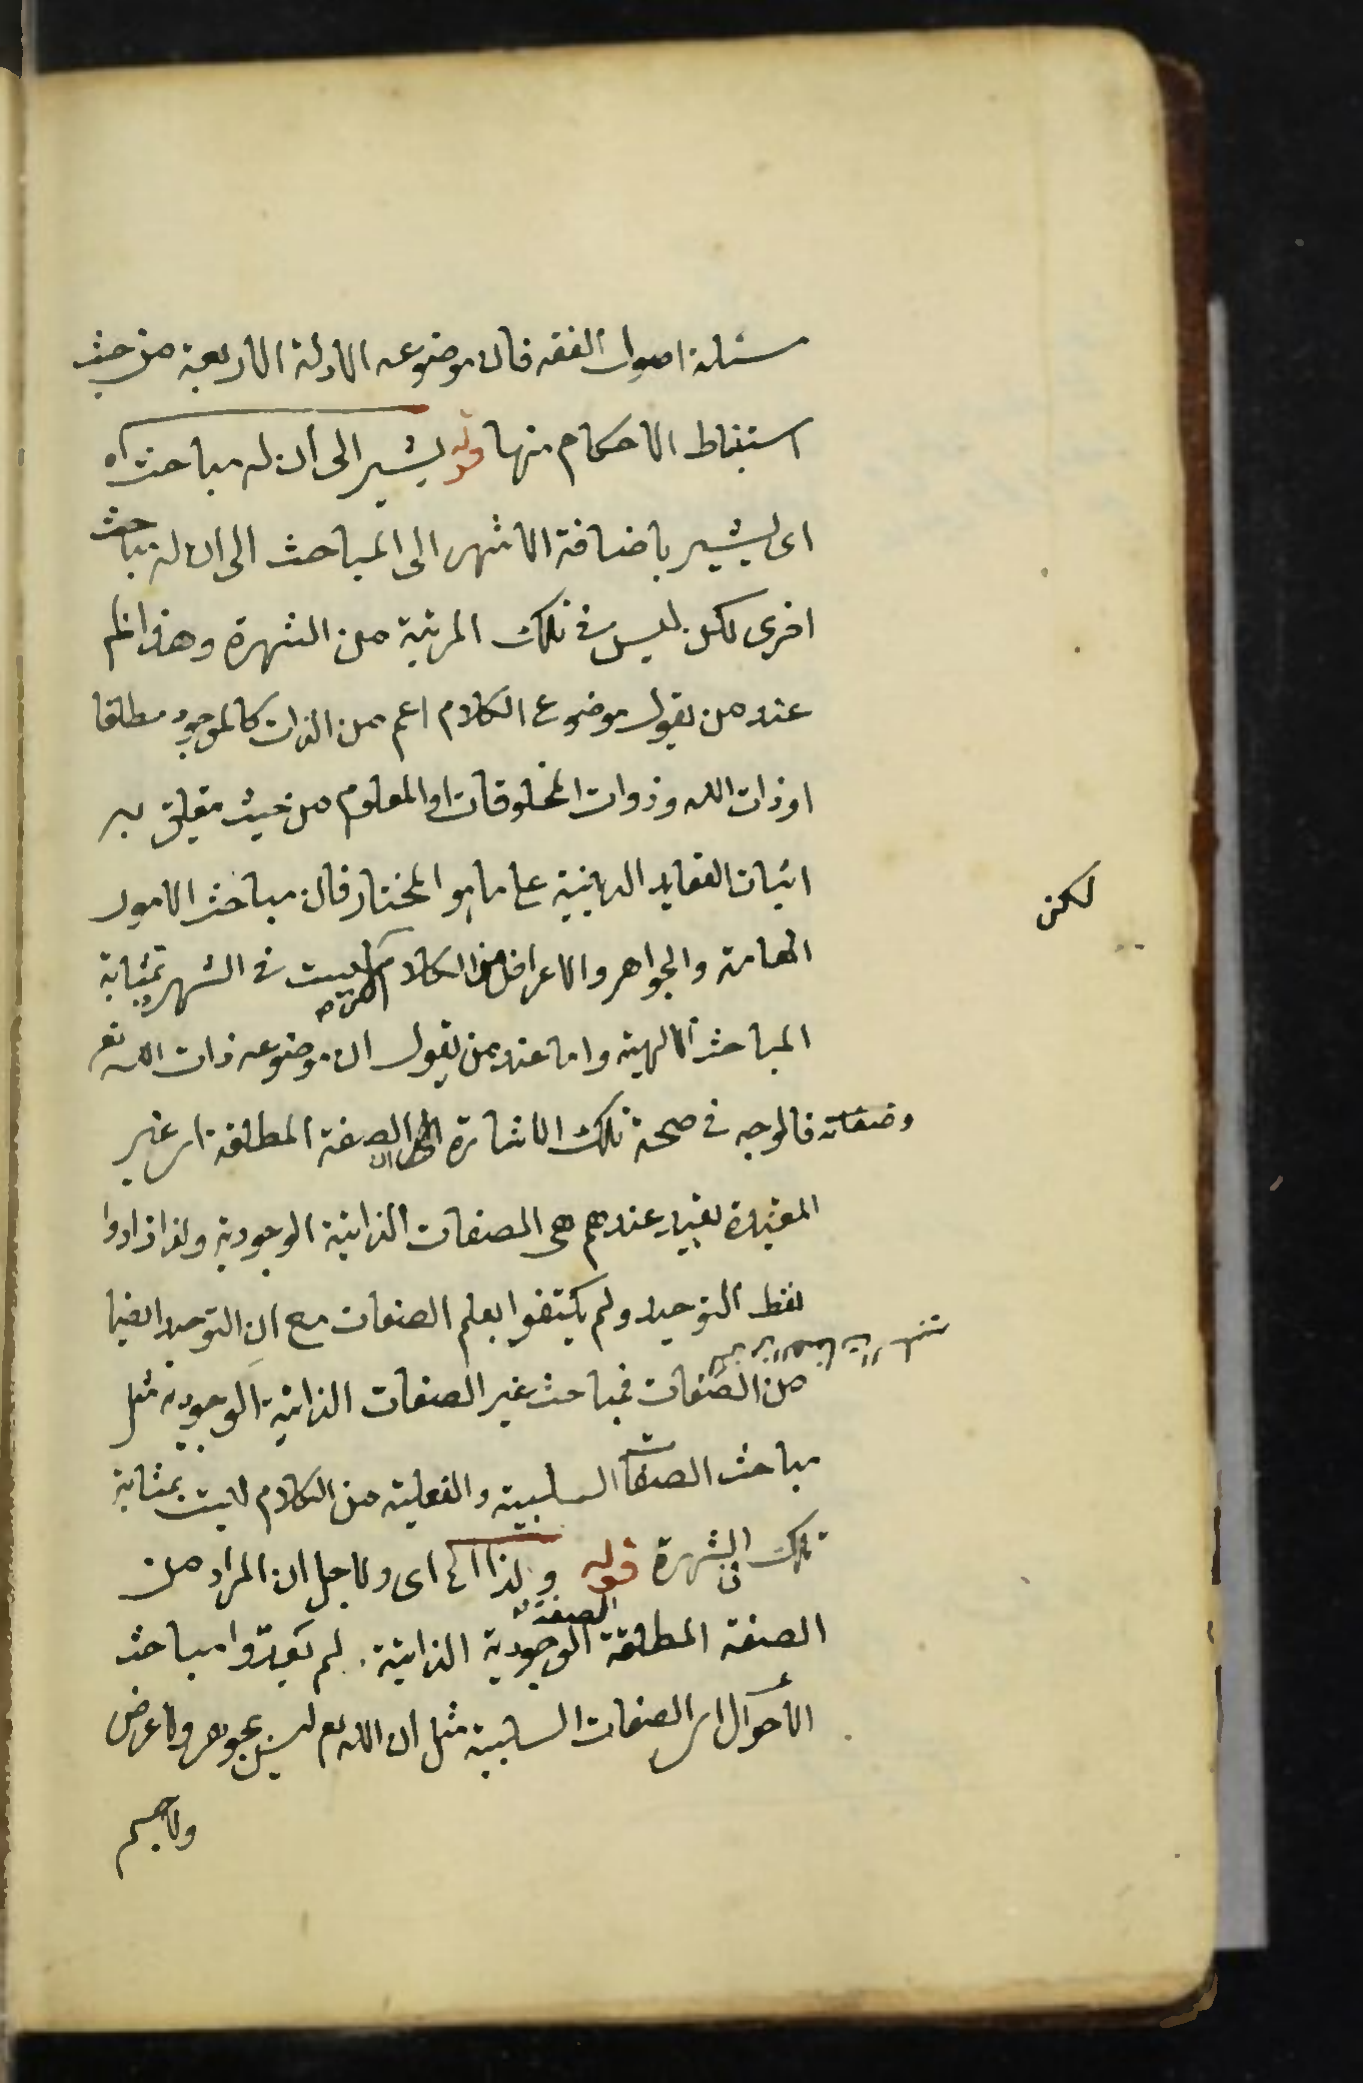 مسئلة اصول الفقه فان موضوعه الادلة الاربعة من حيث
استنباط الاحكام منها قوله يشير الى ان له مباحث اه
اى يشير باضافة الاشهر الى المباحث الى ان له مباحث
اخرى لكن ليس فى تلك المرتبة من الشهرة وهذا انما
عند من يقول موضوع الكلام اعم من الذات كالموجود مطلقا
او ذات الله وذوات المخلوقات او المعلوم من حيث يتعلق به
اثبات العقايد الدينية على ما هو المختار فان مباحث الامور
لكن
العامة والجواهر والاعراض من الكلام ليست فى الشهرة بمثابة
المباحث الالهية واما عند من يقول ان موضوعه ذات الله تع
وصفاته فالوجه فى صحة تلك الاشارة ان الصفة المطلقة اى غير
المقيدة بقيد عندهم هى الصفات الذاتية الوجودية ولذا زادوا
لفظ التوحيد ولم يكتفوا بعلم الصفات مع ان التوحيد ايضا
من الصفات فمباحث غير الصفات الذاتية الوجودية مثل
مباحث الصفات السلبية والفعلية من الكلام ليست بمثابة
تلك فى الشهرة قوله ولذا الخ اى ولاجل ان المراد من
الصفة المطلقة الصفة الوجودية الذاتية لم يعدوا مباحث
الاحوال اى الصفات السلبية مثل ان الله تع ليس بجوهر ولا عرض
ولا جسم